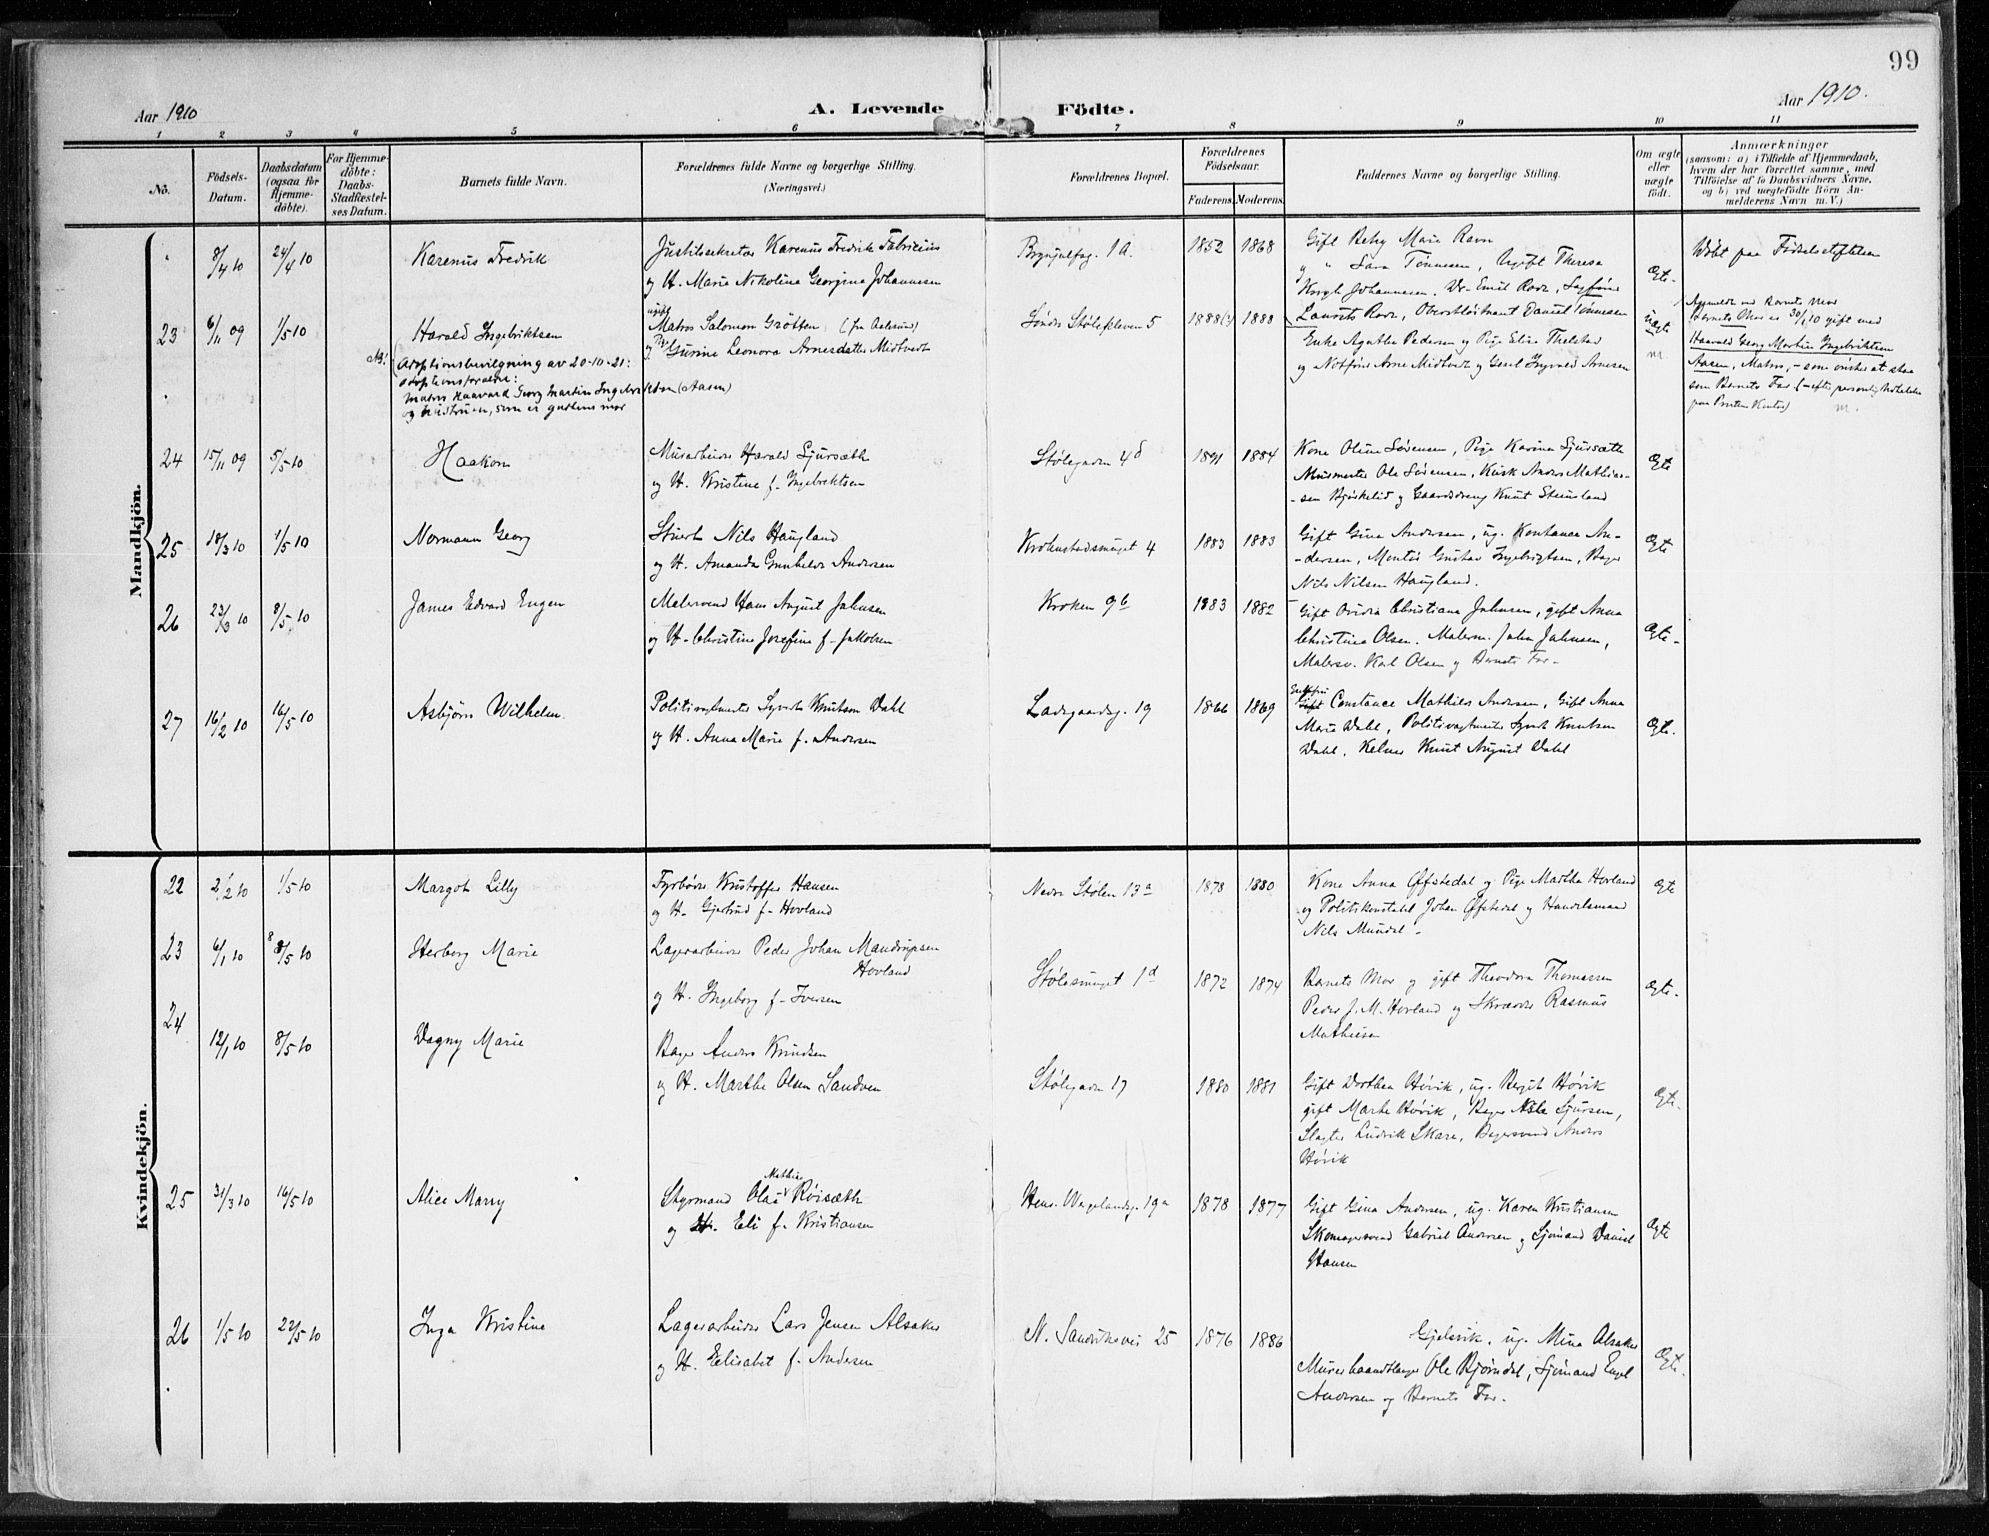 99
Aar 1910
A. Levende Födte.
Aar 1910.
1 2 3 4 5 6 7 8 9 10 11
No.
Födsels-Datum.
Daabsdatum (ogsaa for Hjemme-döbte).
For Hjemme-döbte: Daabs-Stadfæstel-ses Datum.
Barnets fulde Navn.
Forældrenes fulde Navne og borgerlige Stilling. (Næringsvei.)
Forældrenes Bopæl.
Forældrenes Födselsaar.
Faderens Moderens
Faddernes Navne og borgerlige Stilling.
Om ægte eller uægte födt.
Anmærkninger
(saasom: a) i Tilfælde af Hjemmedaab,
hvem der har forrettet samme, med
Tilföielse af to Daabsvidners Navne,
og b) ved uægtefödte Börn An-
melderens Navn m. V.)
Mandkjön.
8/4 10 24/4 10 Karenus Fredrik
Justitssekretær Karenus Fredrik Fabricius
og H. Marie Nikolina Georgina Johannesen
Brynjulfsg. 1a. 1852 1868
Gift Betsy Marie Ravn
og " Sara Tönnesen, Ugift Theresa
Krogh Johannesen. Dr. Emil Ravn,
Laurits Ravn, Oberstløitnant Daniel Tönnesen
Ægte.
Døbt paa Fødselsstiftelsen
23 6/11 09 1/5 10 Harald Ingebriktsen
ugift
Matros Salomon Grötten (fra Aalesund)
og Pige Gurine Leonora Arnesdatter Midtvedt
Söndre Stölekleven 5 1888(?) 1888
Enke Agathe Pedersen og Pige Elise Thelstad
og Notfører Arne Midtvedt og Gesel Ingvald Arnesen
uægte
m.
Anmeldt ved Barnets Mor
Barnets Mor er 30/1 10 gift med
Haavald Georg Martin Ingebriktsen
Aasen, Matros, - som ønsker at staa
som Barnets Far (- efter personlig Meddelelse
paa Prestens Kontor) m.
NB! Adoptionsbevilgning av 20-10-21:
adoptionsforældre:
matros Haavard Georg Martin Ingebriktsen (Aasen)
og hustruen, som er guttens mor
24 15/11 09 5/5 10 Haakon
Murarbeider Harald Sjursæth
og H. Kristine f. Ingebrektsen
Stölegaden 4d 1891 1884
Kone Oline Sørensen, Pige Karina Sjursæth
Murmester Ole Sørensen, Kusk Anders Mathias-
-sen Bjørkelid og Gaardsdreng Knut Steinsland
Ægte
25 18/3 10 1/5 10 Normann Georg
Stuert Nils Haugland
og H. Amanda Gunhilda Andersen
Krohnstadsmuget 4 1883 1883
Gift Gina Andersen, ug. Konstanse An-
-dersen, Montör Gustav Ingebrigtsen, Bager
Nils Nilsen Haugland.
Ægte
26 23/3 10 8/5 10 James Edvard Engen
Malersvend Hans August Jahnsen
og H. Christine Josefine f. Jakobsen
Kroken 9b 1883 1882
Gift Ovidia Christiana Jahnsen, gift Anna
Christina Olsen. Malerm. John Jahnsen,
Malersv. Karl Olsen og Barnets Far.
Ægte.
27 16/2 10 16/5 10 Asbjörn Wilhelm.
Politivagtmester Syvert Knutsen Dahl
og H. Anna Marie f. Andersen
Ladegaardsg. 19 1866 1869
Constance Mathilde Andersen, Gift Anna
Marie Dahl, Politivagtmester Syvert Knutsen
Dahl, Kelner Knut August Dahl
Ægte.
Kvindekjön.
22 2/2 10 1/5 10 Margot Lilly
Fyrbøder Kristoffer Hansen
og H. Gjertrud f. Hovland
Nedre Stölen 13a 1878 1880
Kone Anna Øfstedal og Pige Martha Hovland
og Politikonstabel Johan Øfstedal og Handelsmand
Nils Mundal.
Ægte
23 6/1 10 8/5 10 Herborg Marie
Lagerarbeider Peder Johan Mandrupsen
Hovland
og H. Ingeborg f. Iversen
Stölesmuget 1d 1872 1874
Barnets Mor og gift Theodora Thomassen
Peder J. M. Hovland og Skrædder Rasmus
Mathiesen
Ægte.
24 12/1 10 8/5 10 Dagny Marie
Bager Anders Knudsen
og H. Marthe Olsen Sandven
Stölegaden 17 1880 1881
Gift Dorthea Hövik, ug. Bergit Hövik
gift Marte Hövik, Bager Asle Sjursen,
Slagter Ludvik Skare, Bagersvend Anders
Hövik
Ægte.
25 31/3 10 16/5 10 Alice Marry
Mathias
Styrmand Olai Röisæth
og H. Eli f. Kristiansen
Henr. Wergelandsg. 19a 1878 1877
Gift Gina Andersen, ug. Karen Kristiansen
Skomagersvend Gabriel Andersen og Sjömand Daniel
Hansen
Ægte
26 1/5 10 22/5 10 Inga Kristine
Lagerarbeider Lars Jensen Alsaker
og H. Elisabet f. Andersen
N. Sandviksvei 25 1876 1886
Gjelsvik, ug. Mina Alsaker
Murerhaandtlanger Ole Bjørndal, Sjömand Engel
Andersen og Barnets Far.
Ægte.